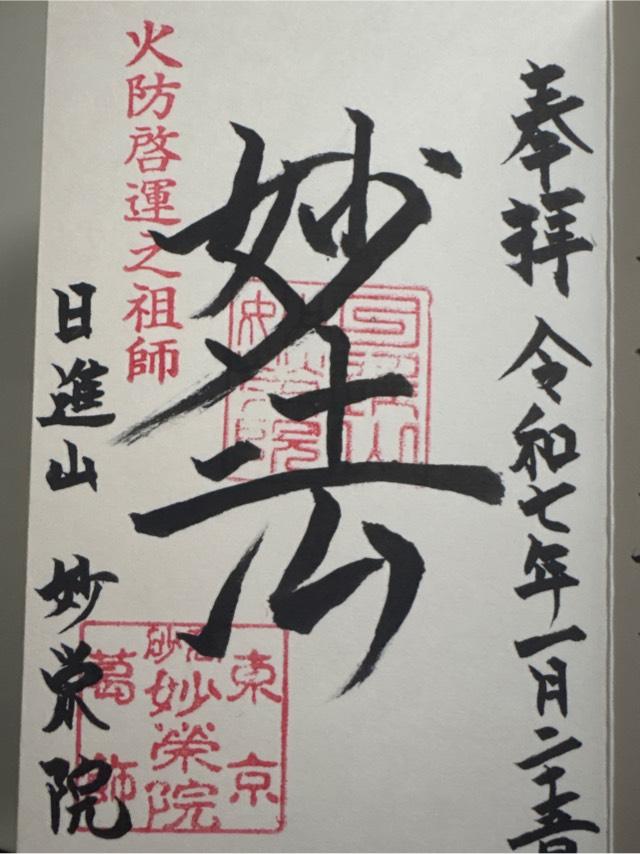 奉拝 令和七年一月二十五日
妙法
火防啓運之祖師
日進山 妙栄院
東京
高砂
妙榮院
葛飾